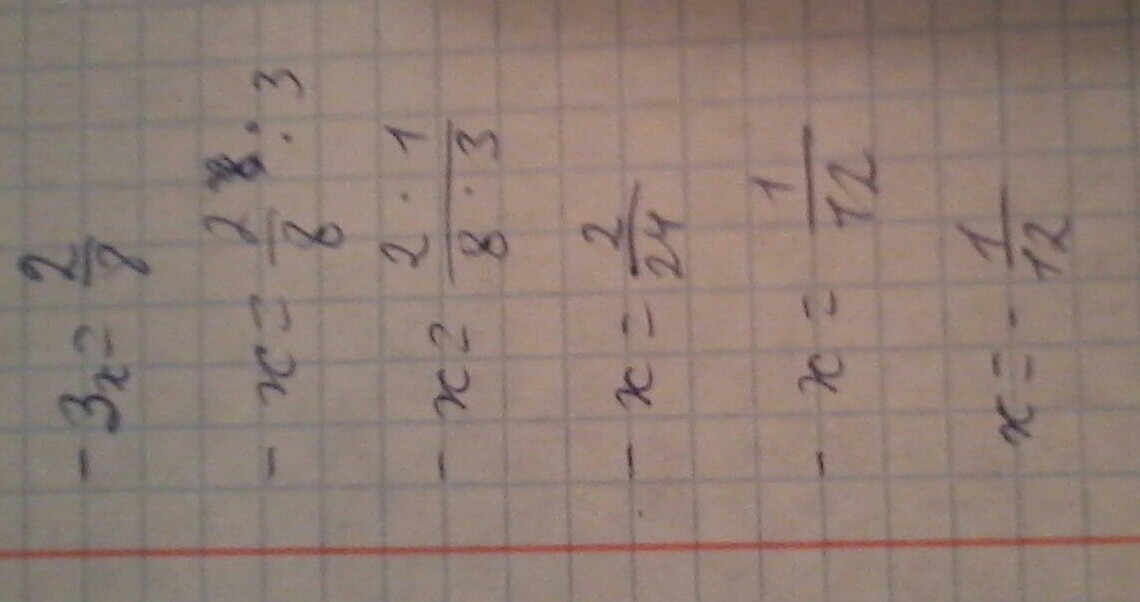 -3x = 2/8
-x = 2/8 : 3
-x = 2 · 1/8 · 3
-x = 2/24
-x = 1/12
x = -1/12